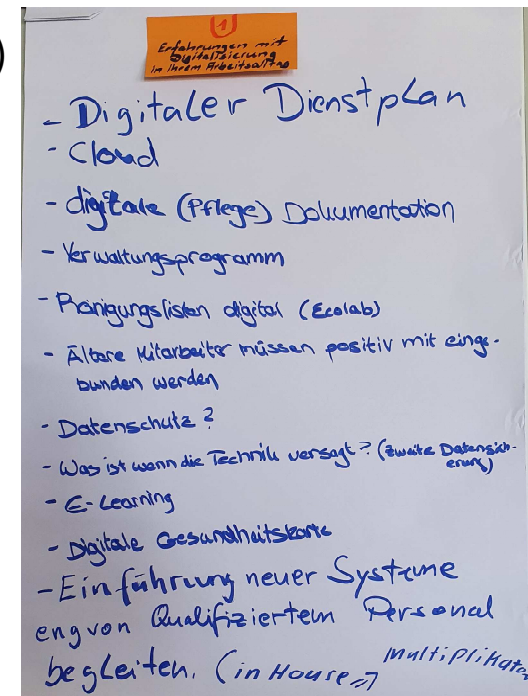 1
Erfahrungen mit
Digitalisierung
in Ihrem Arbeitsalltag
- Digitaler Dienstplan
- Cloud
- digitale (Pflege) Dokumentation
- Verwaltungsprogramm
- Reinigungslisten digital (Ecolab)
- Ältere Mitarbeiter müssen positiv mit einge-
bunden werden
- Datenschutz?
- Was ist wenn die Technik versagt? (zweite Datensich-
erung)
- E-Learning
- Digitale Gesundheitskarte
- Einführung neuer Systeme
eng von Qualifiziertem Personal
begleiten. (in House Multiplikator